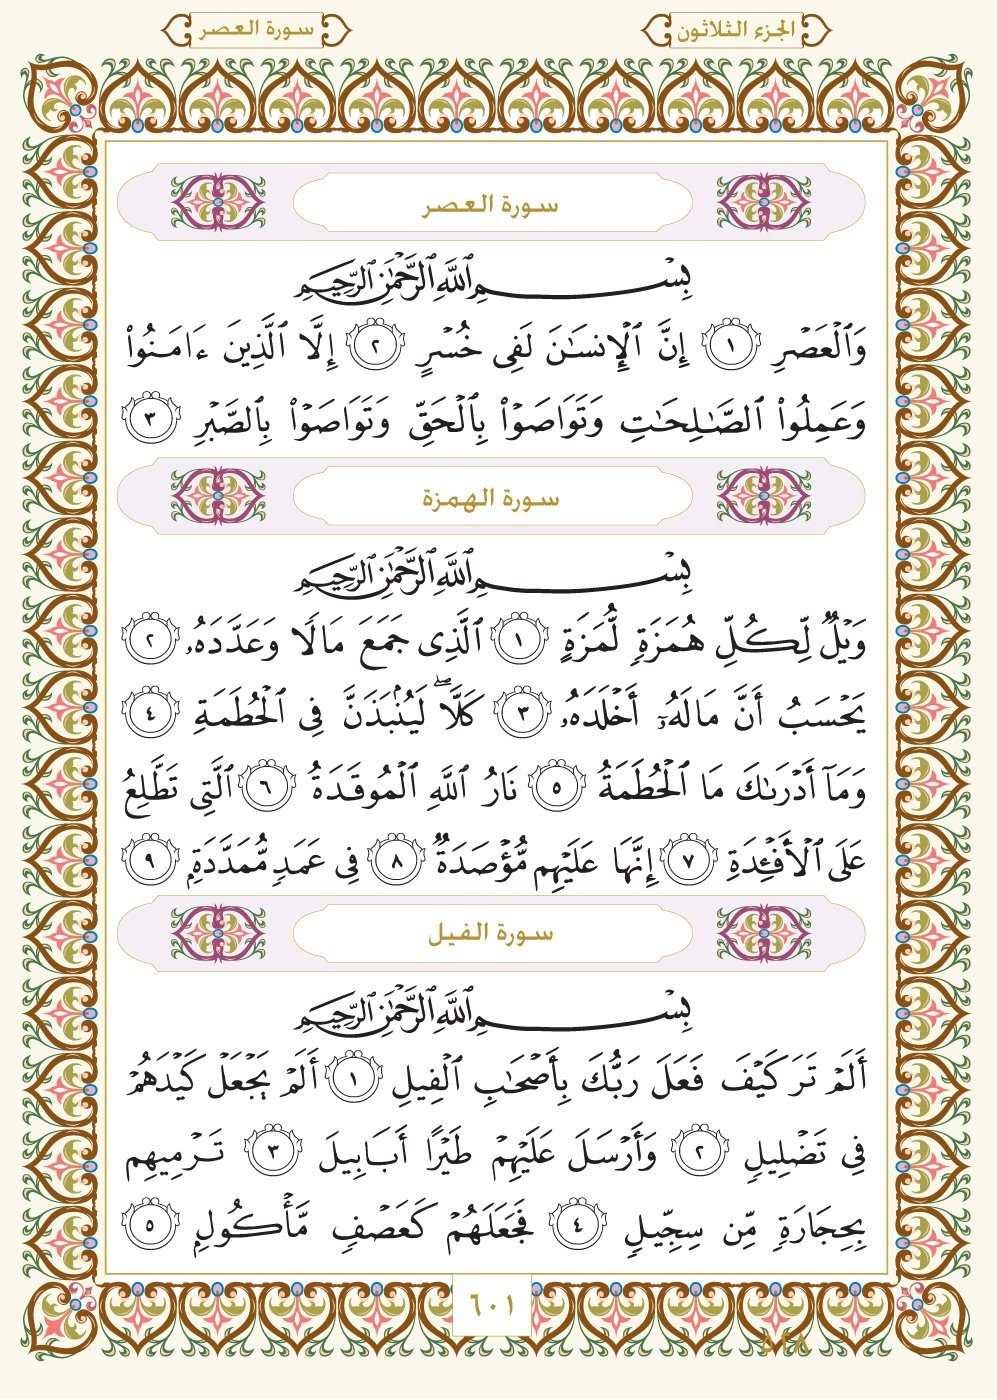 الجزء الثلاثون
سورة العصر
سورة العصر
بِسْمِ ٱللَّهِ ٱلرَّحْمَٰنِ ٱلرَّحِيمِ
وَٱلْعَصْرِ ١ إِنَّ ٱلْإِنسَٰنَ لَفِى خُسْرٍ ٢ إِلَّا ٱلَّذِينَ ءَامَنُوا۟
وَعَمِلُوا۟ ٱلصَّٰلِحَٰتِ وَتَوَاصَوْا۟ بِٱلْحَقِّ وَتَوَاصَوْا۟ بِٱلصَّبْرِ ٣
سورة الهمزة
بِسْمِ ٱللَّهِ ٱلرَّحْمَٰنِ ٱلرَّحِيمِ
وَيْلٌ لِّكُلِّ هُمَزَةٍ لُّمَزَةٍ ١ ٱلَّذِى جَمَعَ مَالًا وَعَدَّدَهُۥ ٢
يَحْسَبُ أَنَّ مَالَهُۥٓ أَخْلَدَهُۥ ٣ كَلَّا ۖ لَيُنۢبَذَنَّ فِى ٱلْحُطَمَةِ ٤
وَمَآ أَدْرَىٰكَ مَا ٱلْحُطَمَةُ ٥ نَارُ ٱللَّهِ ٱلْمُوقَدَةُ ٦ ٱلَّتِى تَطَّلِعُ
عَلَى ٱلْأَفْـِٔدَةِ ٧ إِنَّهَا عَلَيْهِم مُّؤْصَدَةٌ ٨ فِى عَمَدٍ مُّمَدَّدَةٍۭ ٩
سورة الفيل
بِسْمِ ٱللَّهِ ٱلرَّحْمَٰنِ ٱلرَّحِيمِ
أَلَمْ تَرَ كَيْفَ فَعَلَ رَبُّكَ بِأَصْحَٰبِ ٱلْفِيلِ ١ أَلَمْ يَجْعَلْ كَيْدَهُمْ
فِى تَضْلِيلٍ ٢ وَأَرْسَلَ عَلَيْهِمْ طَيْرًا أَبَابِيلَ ٣ تَرْمِيهِم
بِحِجَارَةٍ مِّن سِجِّيلٍ ٤ فَجَعَلَهُمْ كَعَصْفٍ مَّأْكُولٍۭ ٥
٦٠١